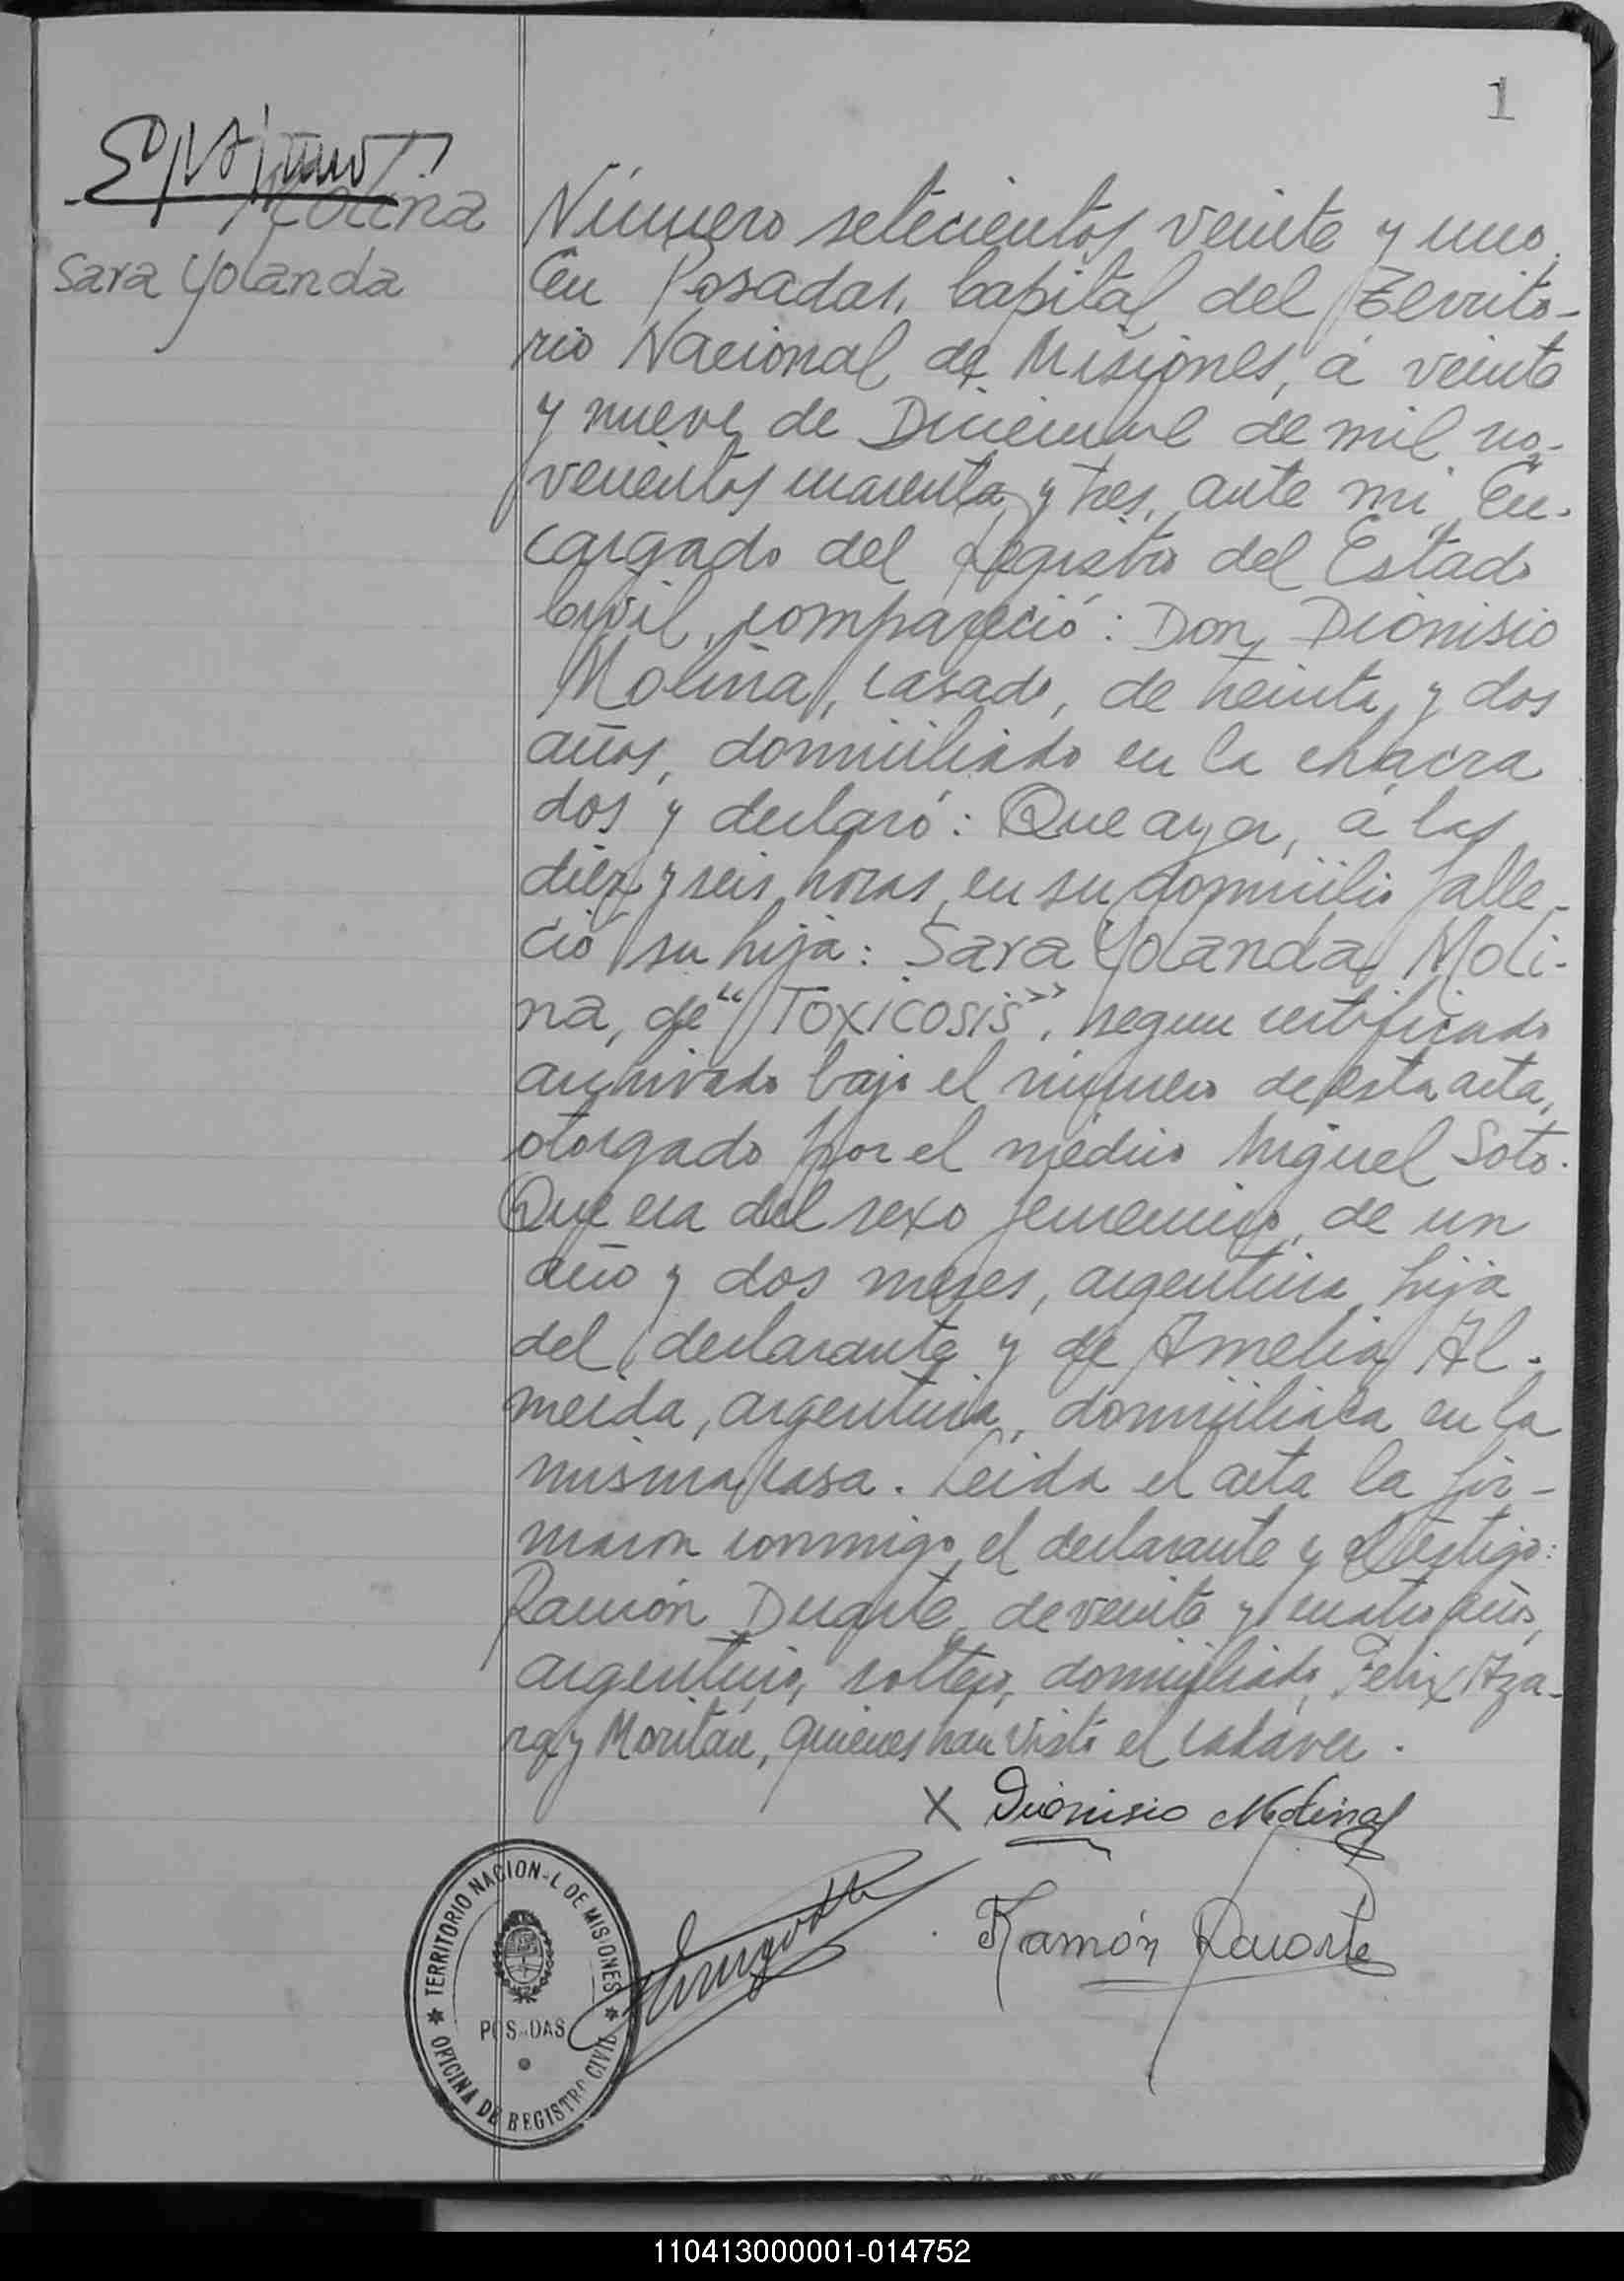 1
Molina
Sara Yolanda
Número setecientos veinte y uno.
En Posadas, Capital del Territo-
rio Nacional de Misiones, á veinte
y nueve de Diciembre de mil no-
vecientos cuarenta y tres, ante mi En-
cargado del Registro del Estado
Civil, compareció: Don Dionisio
Molina, casado, de treinta y dos
años, domiciliado en la chacra
dos y declaró: Que ayer, á las
diez y seis horas, en su domicilio falle-
ció su hija: Sara Yolanda Moli-
na, de "Toxicosis", segun certificado
archivado bajo el número de esta acta,
otorgado por el médico Miguel Soto.
Que era del sexo femenino, de un
año y dos meses, argentina, hija
del declarante y de Amelia Al-
meida, argentina, domiciliada en la
misma casa. Leida el acta la fir-
maron conmigo, el declarante y el testigo:
Ramón Duarte, de veinte y cuatro años,
argentino, soltero, domiciliado, Felix Aza-
ra y Moritán, quienes han visto el cadáver.
X Dionisio Molina
Ramón Duarte
TERRITORIO NACION-L DE MISIONES
POS-DAS
OFICINA DE REGISTRO CIVIL
110413000001-014752